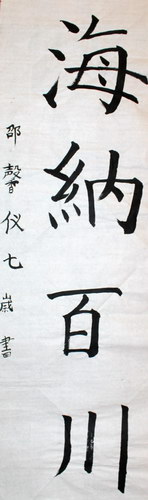 海納百川
邵馨仪七歲書